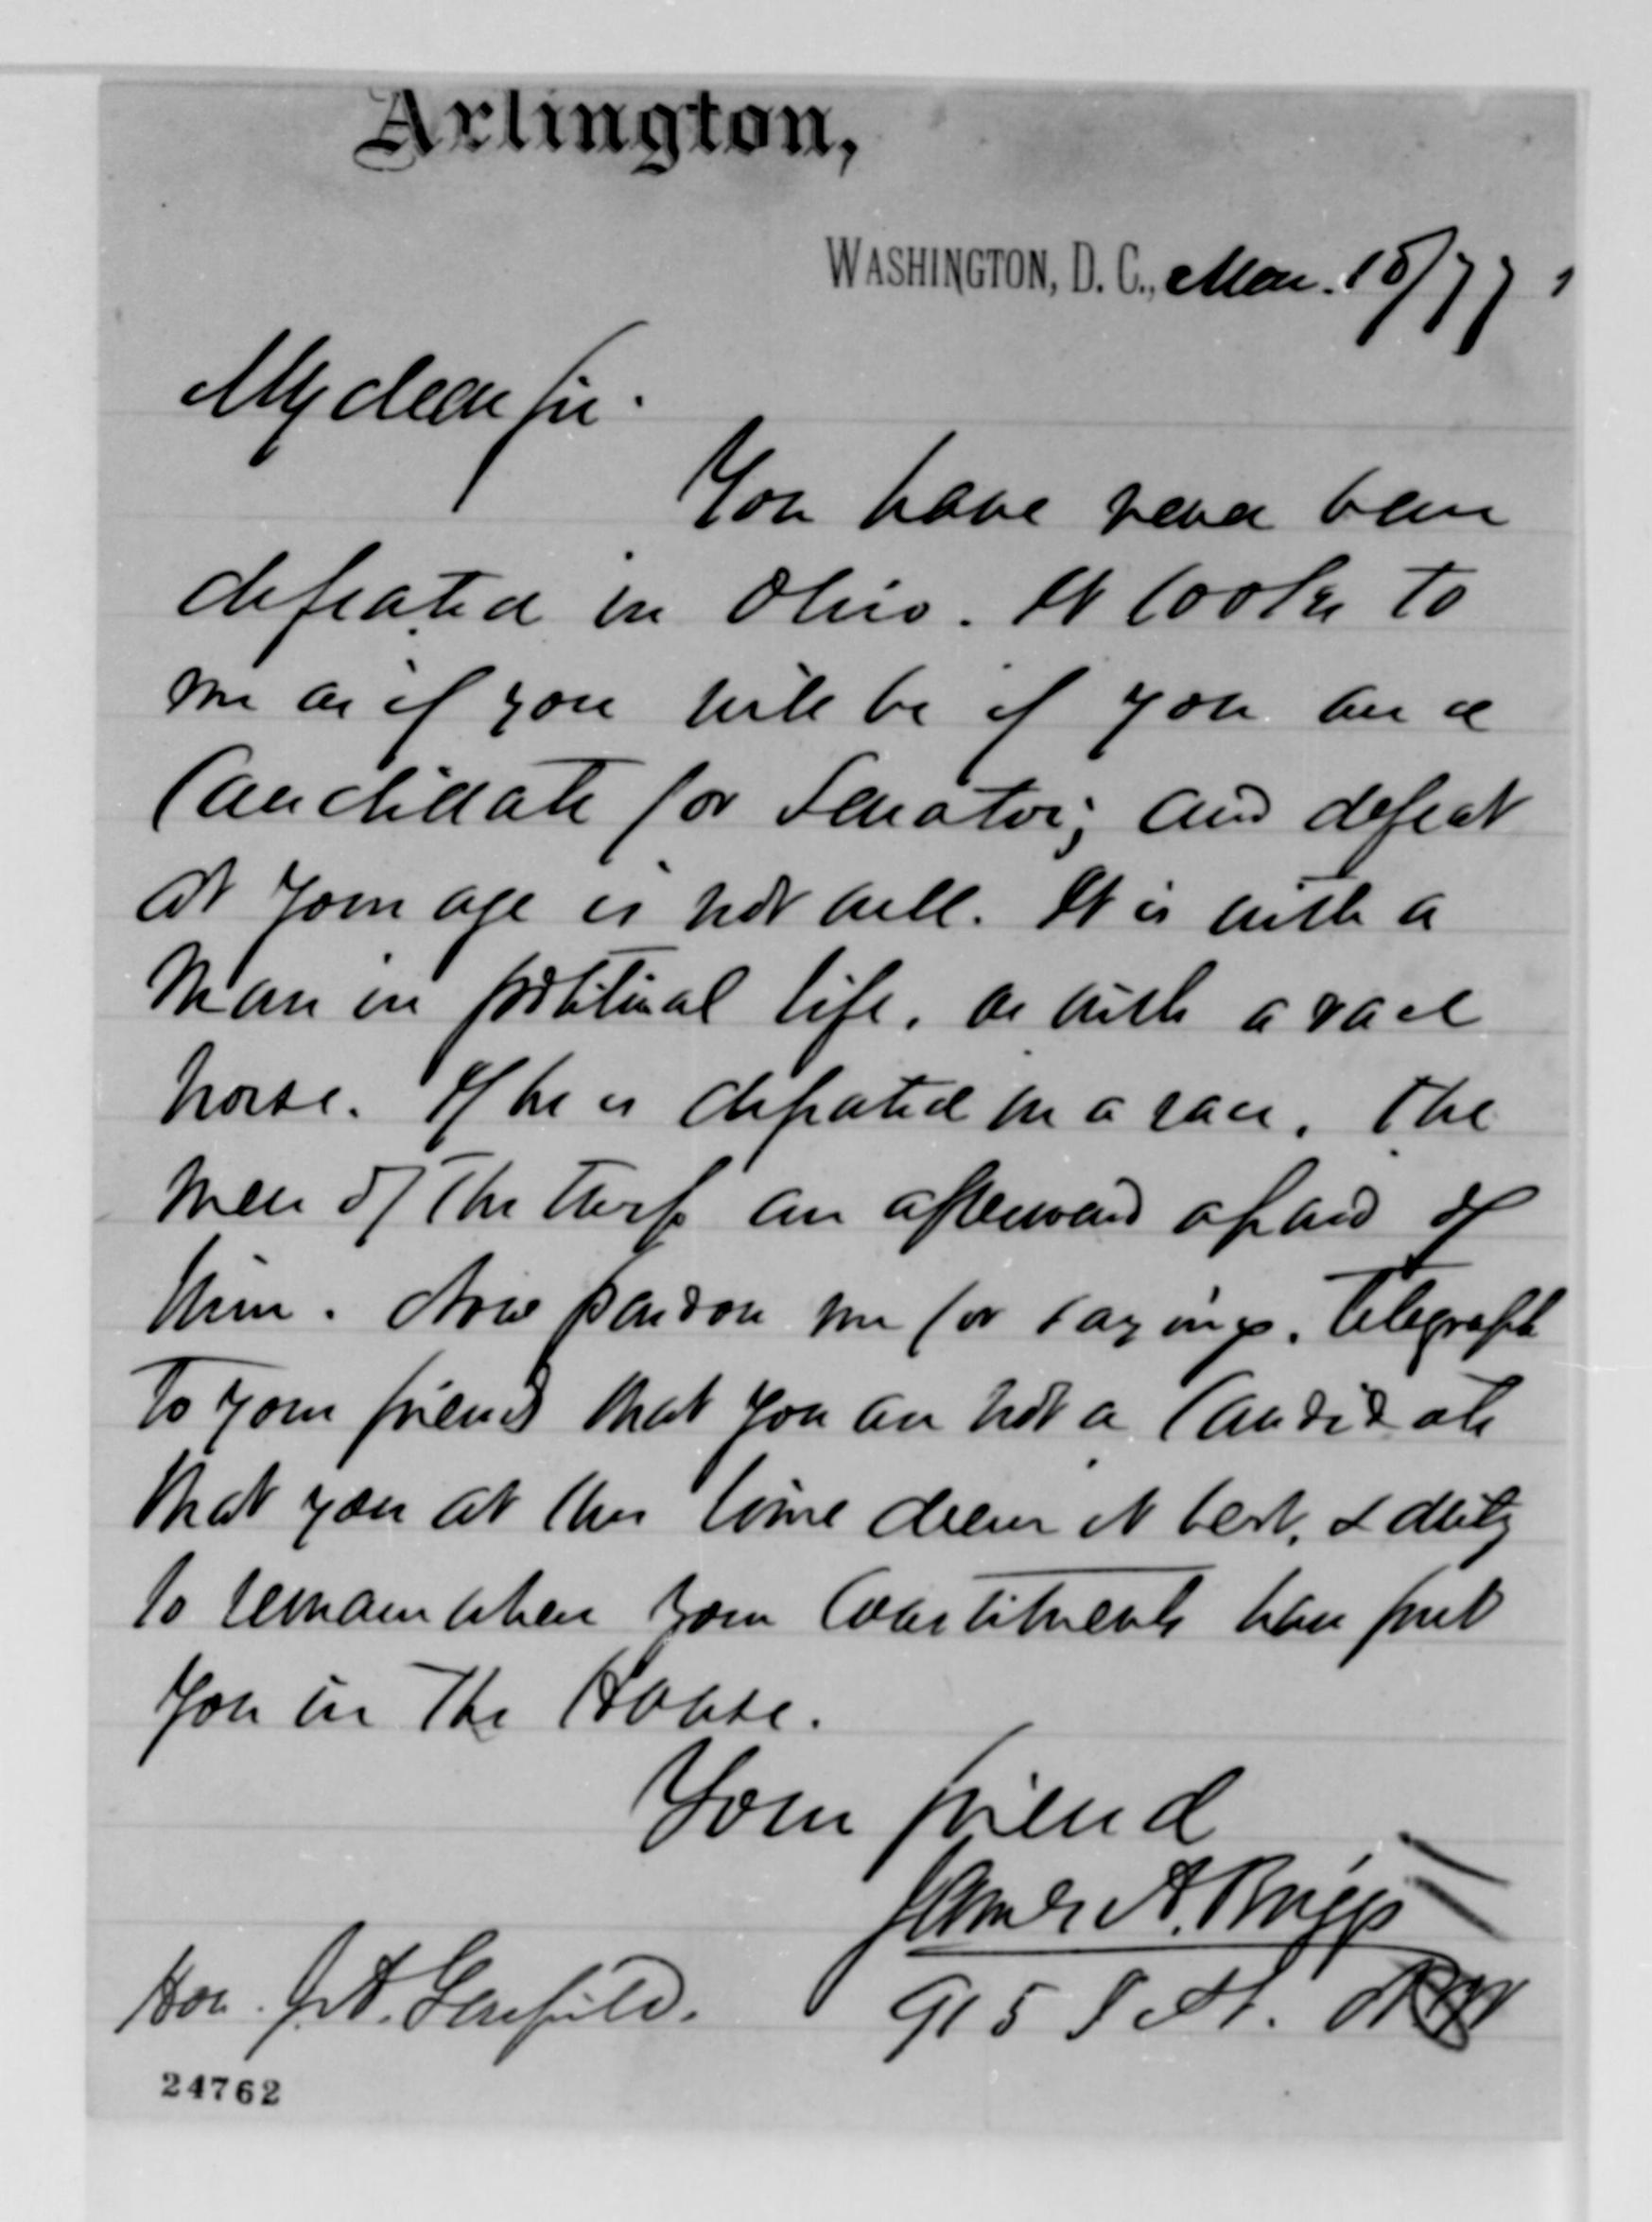 Arlington,
WASHINGTON, D. C., Mar. 15/77,
My dear Sir.
You have never been
defeated in Ohio. It looks to
me as if you will be if you are a
Candidate for Senator; and defeat
at your age is not well. It is with a
man in political life, as with a race
horse. If he is defeated in a race, the
men of the turf are afterward afraid of
him. Now pardon me for saying, telegraph
to your friends that you are not a Candidate
that you at this time deem it best, & duty
to remain where your Constituents have put
you in the House.
Your friend
James A. Briggs
915 St. N.W
Hon. J. A. Garfield.
24762